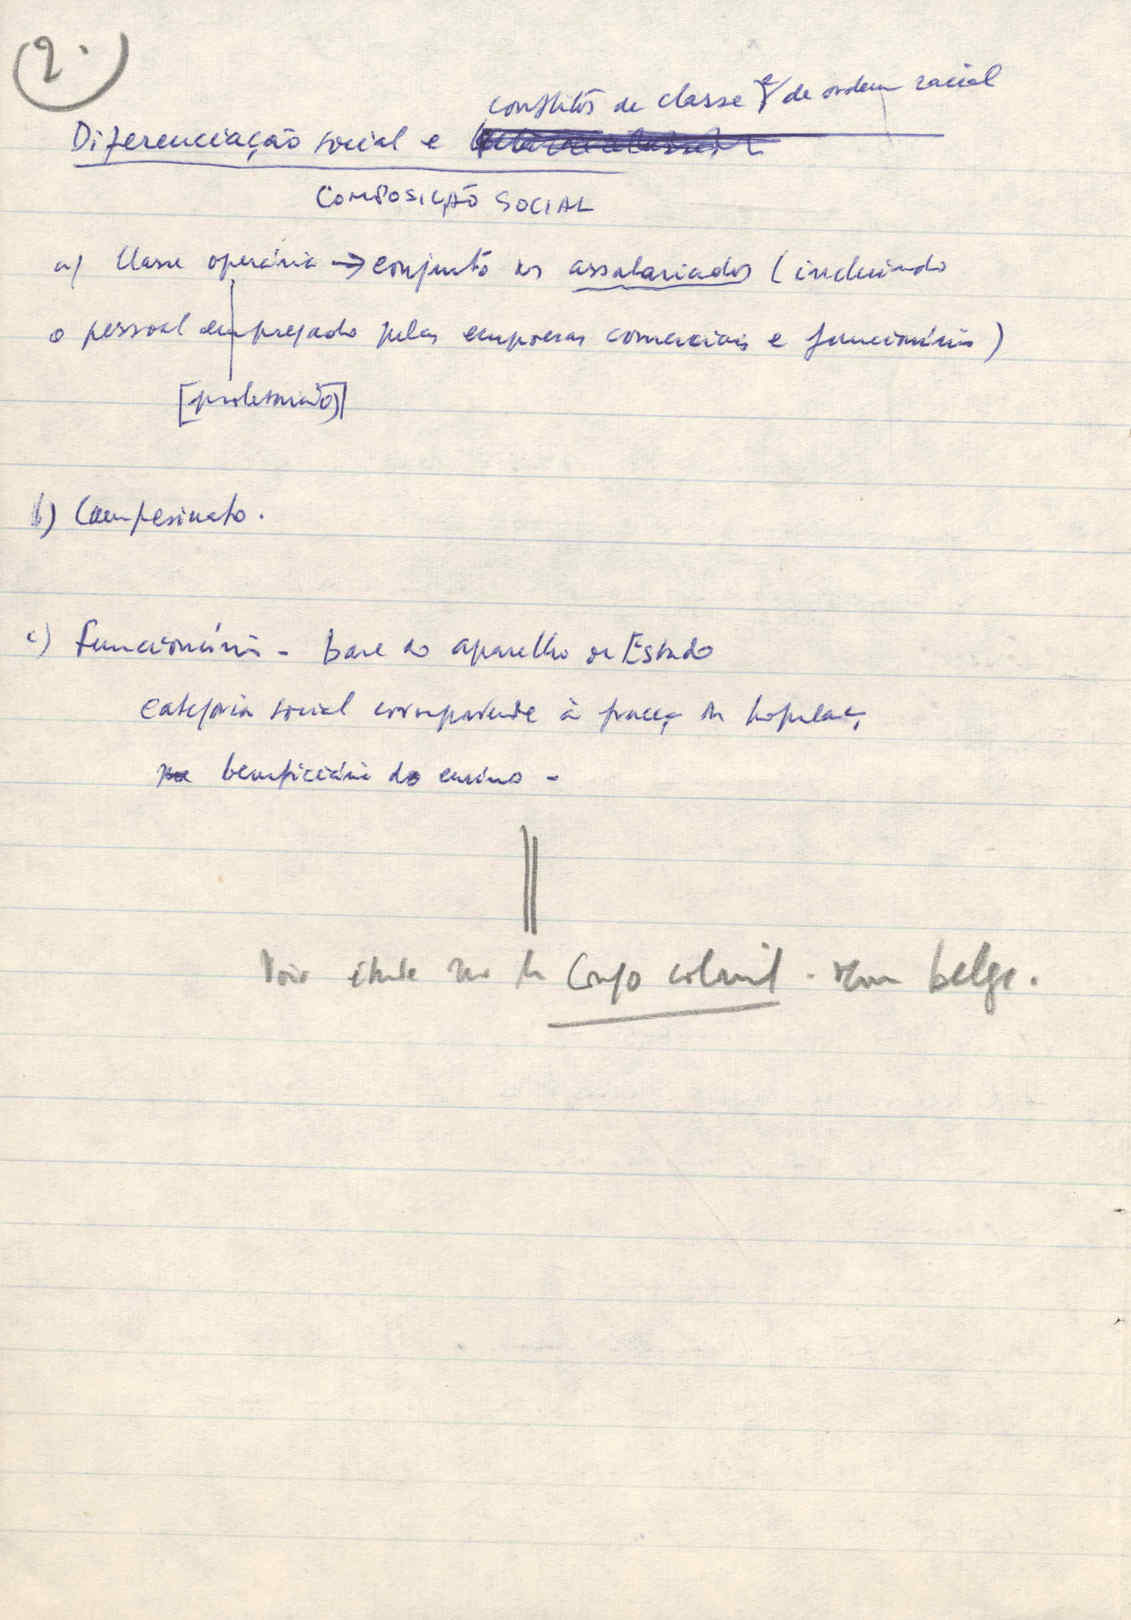 2.
conflitos de classe e/ de ordem racial
Diferenciação social e
COMPOSIÇÃO SOCIAL
a) Classe operária → conjunto dos assalariados (incluindo
o pessoal empregado pelas empresas comerciais e funcionários)
[proletariado]
b) Campesinato.
c) Funcionários - base do aparelho de Estado
categoria social correspondente à fracç. da populaç.
beneficiária do ensino -
Voir étude sur le Congo colonial - belge.